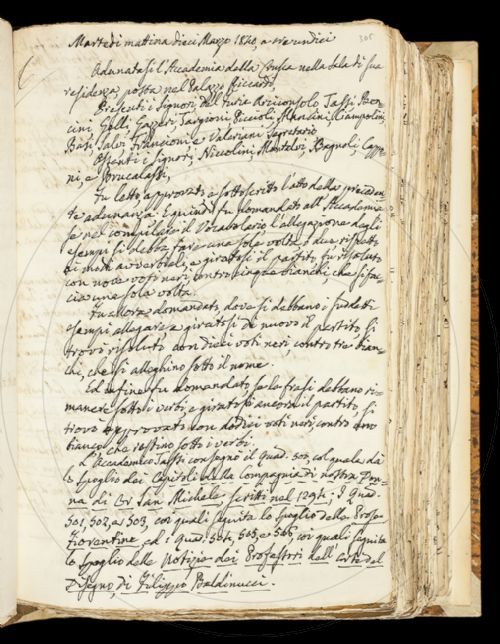 305
Martedì mattina dieci Marzo 1840, a ore undici
Adunatasi l'Accademia della Crusca nella Sala di sua
residenza, posta nel Palazzo Riccardi,
Presenti i Signori Del Furia Arciconsolo, Tassi, Ben-
cini, Gelli, Gazzeri, Targioni, Piccioli, Mancini, Ciampolini,
Basi, Salvi, Franceschi e Valeriani Segretario
Assenti i Signori, Niccolini, Montalvi, Bagnoli, Cappo-
ni, e Brucalassi,
Fu letto, approvato, e sottoscritto l'atto della preceden-
te adunanza. E quindi fu domandato all'Accademia
se nel compilare il Vocabolario l'allegazione degli
esempi si debba fare una sola volta, o due rispetto
ai modi avverbiali, e giratosi il partito, fu risoluto
con nove voti neri, contro cinque bianchi, che si fac-
cia una sola volta.
Fu allora domandato, dove si debbano i suddetti
esempi allegare, e giratosi di nuovo il partito, si
trovò risoluto con dieci voti neri, contro tre bian-
chi, che si alleghino sotto il nome.
Ed infine fu domandato se le frasi debbano ri-
manere sotto i verbi, e giratosi ancora il partito, si
trovò approvato con dodici voti neri contro uno
bianco, che restino sotto i verbi.
L'Accademico Tassi consegnò il Quad. 500, col quale dà
lo spoglio dei Capitoli della Compagnia di nostra Don-
na di Or San Michele, scritti nel 1294; I Quad.
501, 502, e 503, coi quali seguita lo spoglio delle Prose
Fiorentine ed i Quad. 504, 505, e 506, coi quali seguita
lo spoglio delle Notizie dei Professori dell'Arte del
Disegno, di Filippo Baldinucci.